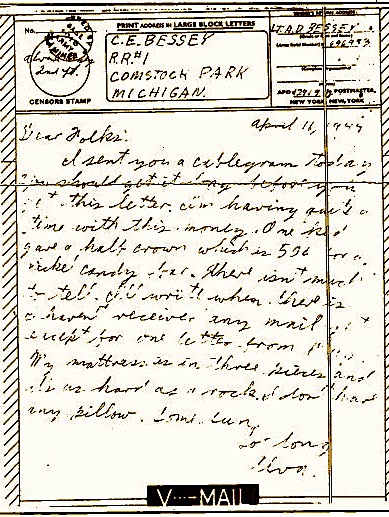 No.
CENSORS STAMP
PRINT ADDRESS IN LARGE BLOCK LETTERS
C.E. BESSEY
RR#1
COMSTOCK PARK
MICHIGAN.
LT. A.D. BESSEY
APO POSTMASTER,
NEW YORK, NEW YORK.
April 16, 1944
Dear Folks:
I sent you a cablegram today
You should get it long before you
get this letter. I'm having quite a
time with this money. One kid
gave a half crown which is 50¢ for a
nickel candy bar. There isn't much
to tell. I'll write when there is
I haven't received any mail yet
except for one letter from
My mattress is in three pieces and
it's as hard as a rock. I don't have
any pillow.
So long
Alva.
V-MAIL